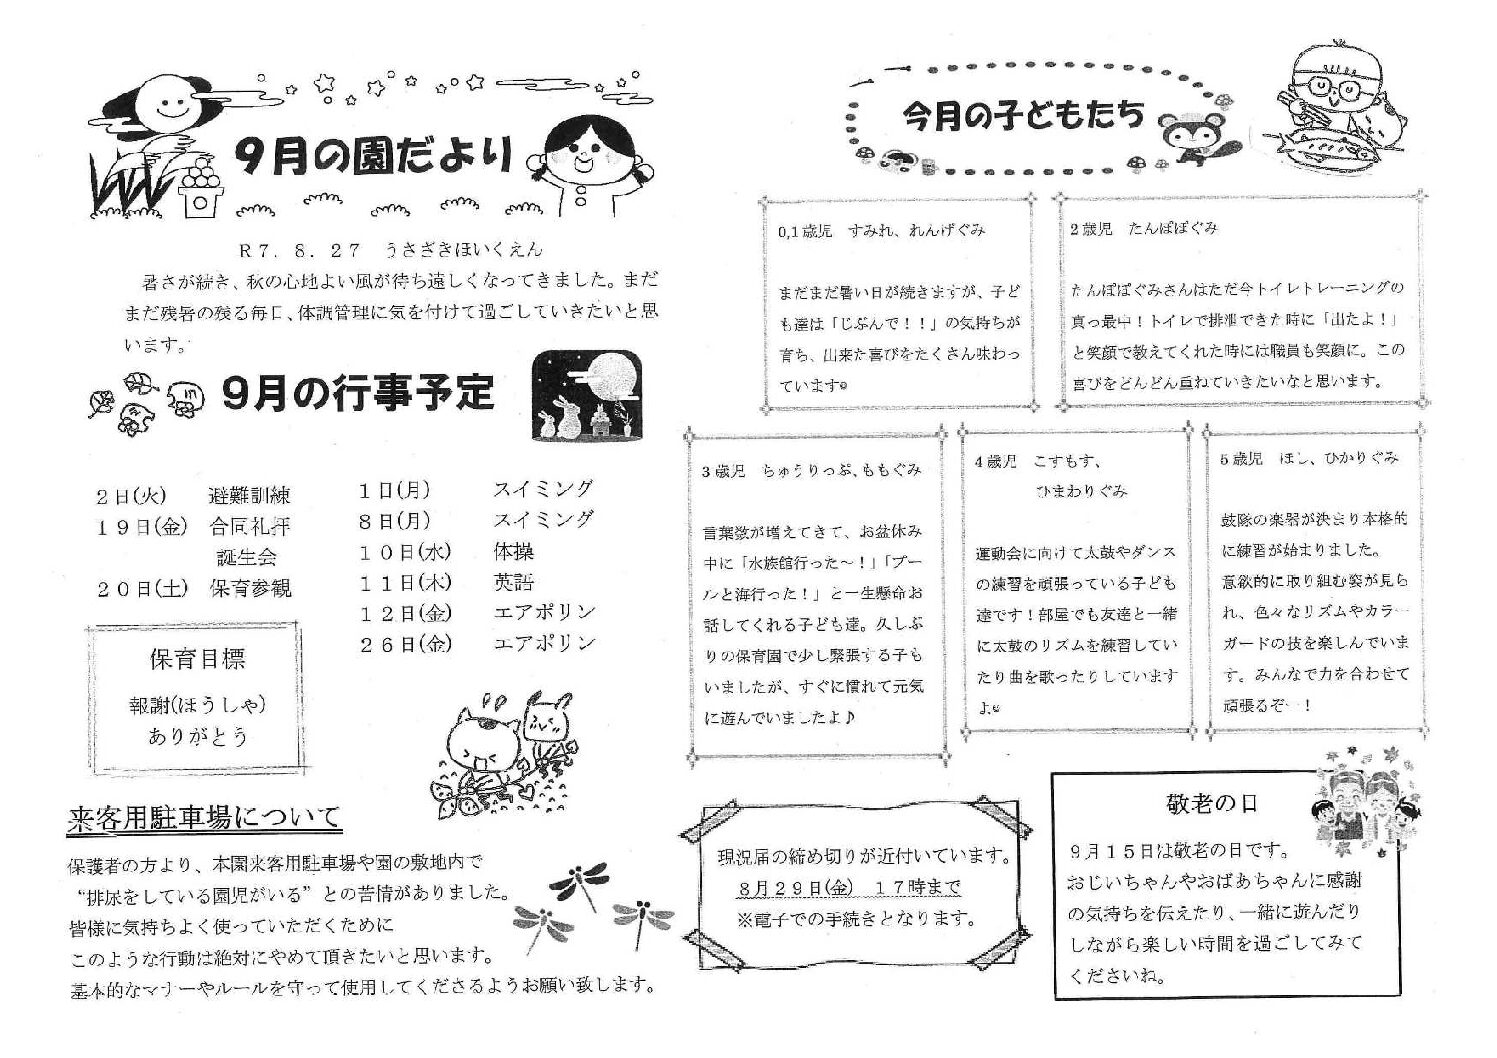 9月の園だより
R7．8．27　うさざきほいくえん
暑さが続き、秋の心地よい風が待ち遠しくなってきました。まだ
まだ残暑の残る毎日、体調管理に気を付けて過ごしていきたいと思
います。
9月の行事予定
2日(火)　避難訓練
19日(金)　合同礼拝
誕生会
20日(土)　保育参観
1日(月)　スイミング
8日(月)　スイミング
10日(水)　体操
11日(木)　英語
12日(金)　エアポリン
26日(金)　エアポリン
保育目標
報謝(ほうしゃ)
ありがとう
来客用駐車場について
保護者の方より、本園来客用駐車場や園の敷地内で
“排尿をしている園児がいる”との苦情がありました。
皆様に気持ちよく使っていただくために
このような行動は絶対にやめて頂きたいと思います。
基本的なマナーやルールを守って使用してくださるようお願い致します。
今月の子どもたち
0,1歳児　すみれ、れんげぐみ
まだまだ暑い日が続きますが、子ど
も達は「じぶんで！！」の気持ちが
育ち、出来た喜びをたくさん味わっ
ています☺
2歳児　たんぽぽぐみ
たんぽぽぐみさんはただ今トイレトレーニングの
真っ最中！トイレで排泄できた時に「出たよ！」
と笑顔で教えてくれた時には職員も笑顔に。この
喜びをどんどん重ねていきたいなと思います。
3歳児　ちゅうりっぷ、ももぐみ
言葉数が増えてきて、お盆休み
中に「水族館行った～！」「プー
ルと海行った！」と一生懸命お
話してくれる子ども達。久しぶ
りの保育園で少し緊張する子も
いましたが、すぐに慣れて元気
に遊んでいましたよ♪
4歳児　こすもす、
ひまわりぐみ
運動会に向けて太鼓やダンス
の練習を頑張っている子ども
達です！部屋でも友達と一緒
に太鼓のリズムを練習してい
たり曲を歌ったりしています
よ☺
5歳児　ほし、ひかりぐみ
鼓隊の楽器が決まり本格的
に練習が始まりました。
意欲的に取り組む姿が見ら
れ、色々なリズムやカラー
ガードの技を楽しんでいま
す。みんなで力を合わせて
頑張るぞー！
現況届の締め切りが近付いています。
8月29日(金)　17時まで
※電子での手続きとなります。
敬老の日
9月15日は敬老の日です。
おじいちゃんやおばあちゃんに感謝
の気持ちを伝えたり、一緒に遊んだり
しながら楽しい時間を過ごしてみて
くださいね。